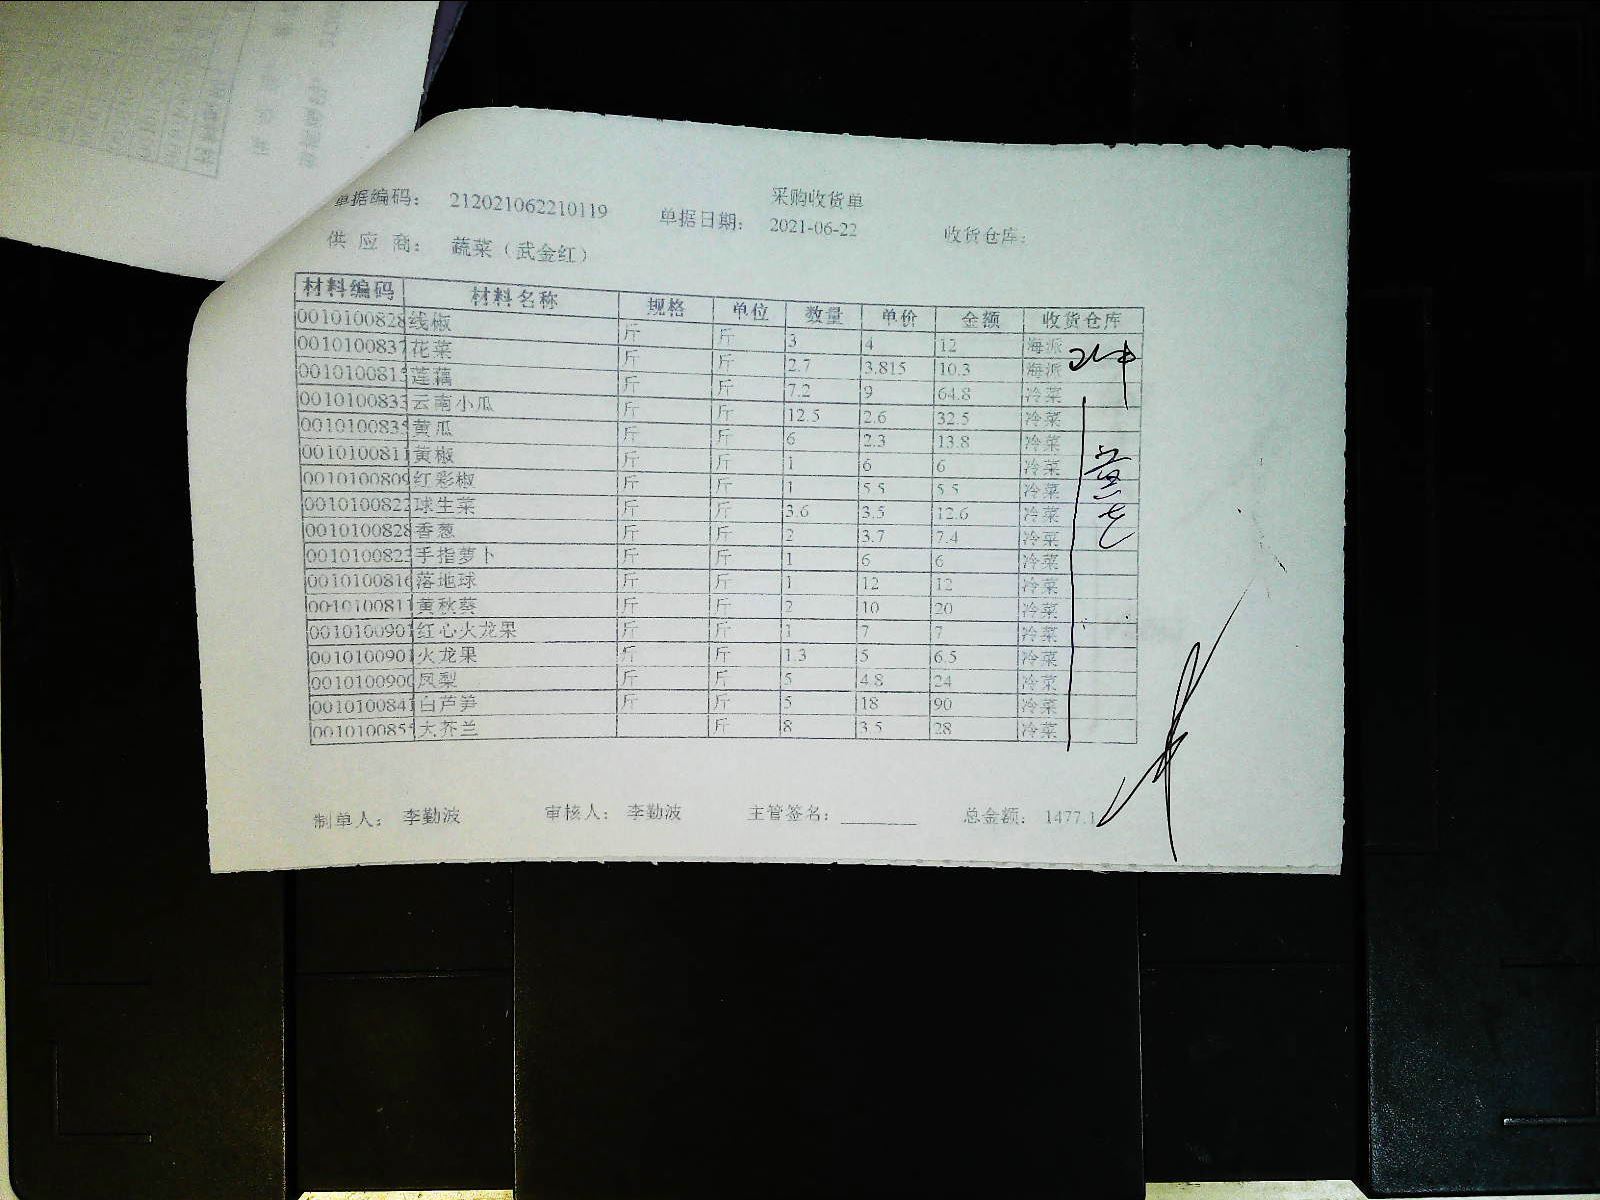 采购收货单
单据编码： 212021062210119 单据日期： 2021-06-22 收货仓库：
供 应 商： 蔬菜（武金红）
材料编码 材料名称 规格 单位 数量 单价 金额 收货仓库
0010100828 线椒 斤 斤 3 4 12 海派
0010100837 花菜 斤 斤 2.7 3.815 10.3 海派
001010081 莲藕 斤 斤 7.2 9 64.8 冷菜
001010083 云南小瓜 斤 斤 12.5 2.6 32.5 冷菜
001010083 黄瓜 斤 斤 6 2.3 13.8 冷菜
001010081 黄椒 斤 斤 1 6 6 冷菜
001010080 红彩椒 斤 斤 1 5.5 5.5 冷菜
001010082 球生菜 斤 斤 3.6 3.5 12.6 冷菜
001010082 香葱 斤 斤 2 3.7 7.4 冷菜
001010082 手指萝卜 斤 斤 1 6 6 冷菜
001010081 落地球 斤 斤 1 12 12 冷菜
001010081 黄秋葵 斤 斤 2 10 20 冷菜
001010090 红心火龙果 斤 斤 1 7 7 冷菜
001010090 火龙果 斤 斤 1.3 5 6.5 冷菜
001010090 凤梨 斤 斤 5 4.8 24 冷菜
001010084 白芦笋 斤 斤 5 18 90 冷菜
001010085 大芥兰 斤 8 3.5 28 冷菜
制单人： 李勤波 审核人： 李勤波 主管签名： 总金额： 1477.1